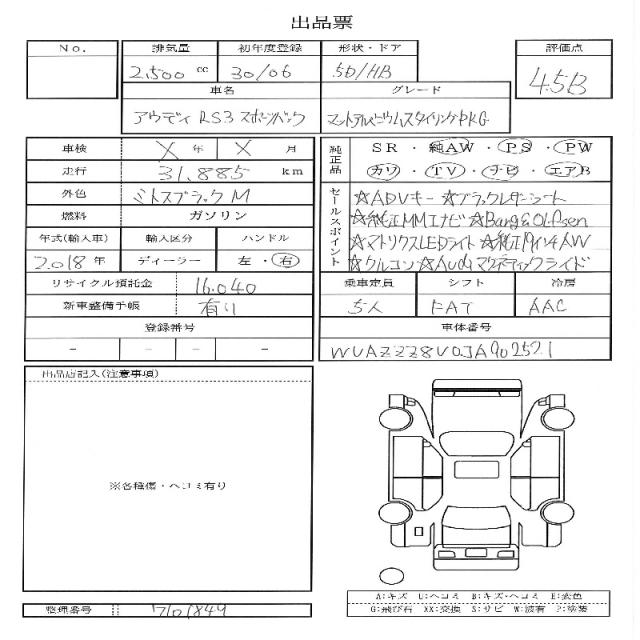 出品票
No. 排気量 初年度登録 形状・ドア 評価点
2,500 cc 30/06 5D/HB 4.5B
車名 グレード
アウディ RS3 スポーツバック マットアルミニウムスタイリングPKG
車検 X 年 X 月
走行 31,885 km
外色 ミトスブラックM
燃料 ガソリン
年式(輸入車) 輸入区分 ハンドル
2018年 ディーラー 左・右
リサイクル預託金 16,040
新車整備手帳 有り
登録番号
- - - -
純正品 SR・純AW・PS・PW
カワ・TV・ナビ・エアB
セールスポイント ☆ADVキー ☆ブラックレザーシート
☆純正MMIナビ ☆Bang&Olfsen
☆マトリクスLEDライト ☆純正19インチAW
☆クルコン ☆Audiマグネティックライド
乗車定員 シフト 冷房
5人 FAT AAC
車体番号
WUAZZZ8V0JA902571
出品店記入(注意事項)
※各種傷・ヘコミ有り
A:キズ U:ヘコミ B:キズ・ヘコミ E:変色
G:飛び石 XX:交換 S:サビ W:波有 P:塗装
整理番号 7101849